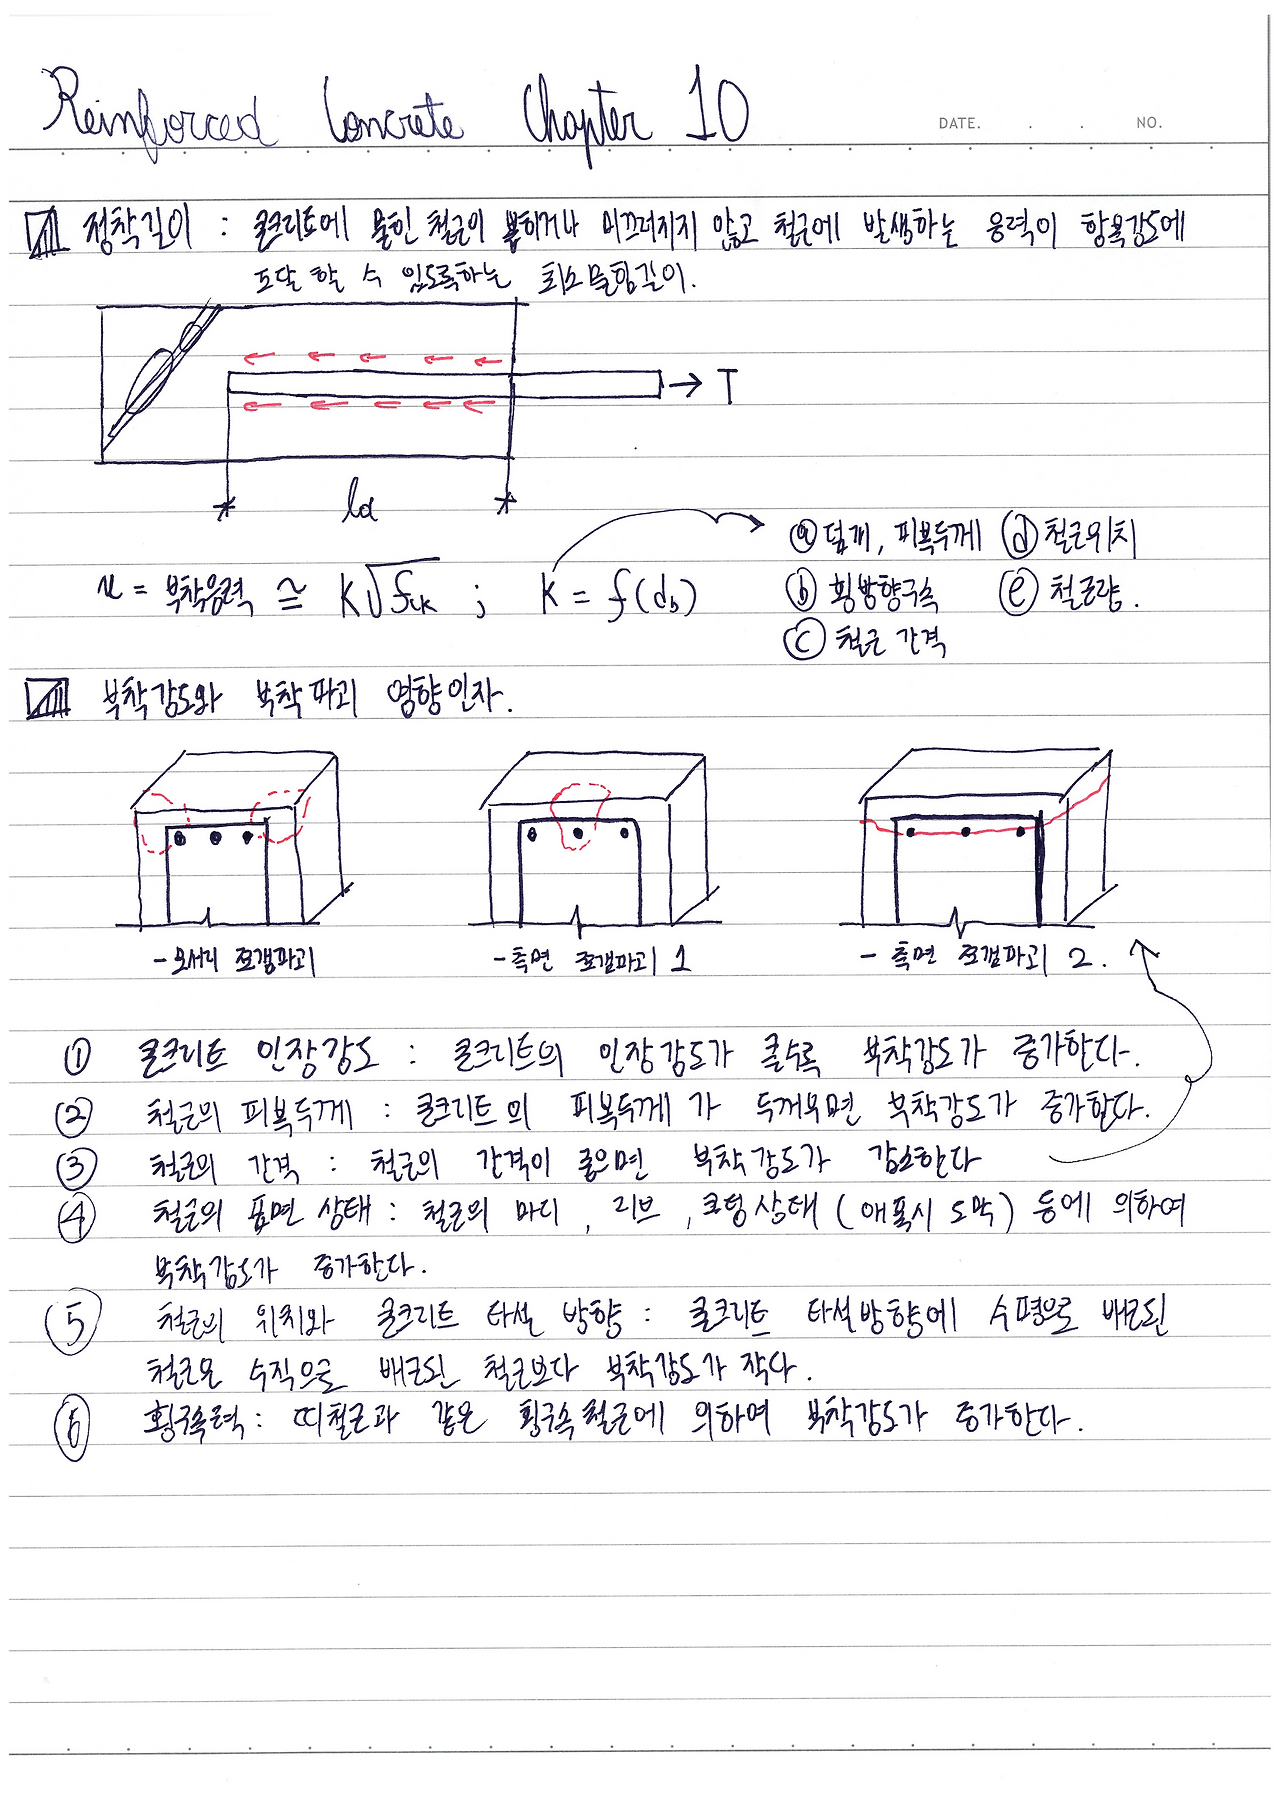 Reinforced Concrete Chapter 10
DATE. . . NO.
정착길이 : 콘크리트에 묻힌 철근이 뽑히거나 미끄러지지 않고 철근에 발생하는 응력이 항복강도에
도달 할 수 있도록하는 최소 묻힘길이.
T
ld
ⓐ 덮개, 피복두께 ⓓ 철근위치
u = 부착응력 ≅ K√fck ; K = f(db)
ⓑ 횡방향구속 ⓔ 철근량.
ⓒ 철근 간격
부착강도와 부착파괴 영향인자.
- 모서리 쪼갬파괴 - 측면 쪼갬파괴 1 - 측면 쪼갬파괴 2.
① 콘크리트 인장강도 : 콘크리트의 인장강도가 클수록 부착강도가 증가한다.
② 철근의 피복두께 : 콘크리트의 피복두께가 두꺼우면 부착강도가 증가한다.
③ 철근의 간격 : 철근의 간격이 좁으면 부착강도가 감소한다
④ 철근의 표면 상태 : 철근의 마디 , 리브 , 코팅상태 (애폭시 도막) 등에 의하여
부착강도가 증가한다.
⑤ 철근의 위치와 콘크리트 타설 방향 : 콘크리트 타설방향에 수평으로 배근된
철근은 수직으로 배근된 철근보다 부착강도가 작다.
⑥ 횡구속력 : 띠철근과 같은 횡구속철근에 의하여 부착강도가 증가한다.